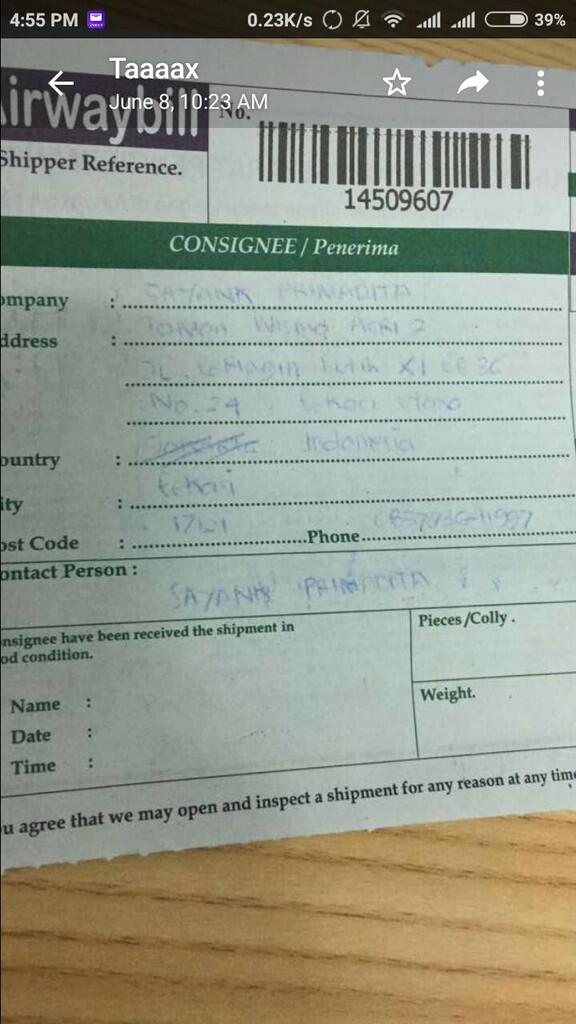 4:55 PM 0.23K/s 39%
Taaaax
June 8, 10:23 AM
irwaybill No.
Shipper Reference.
14509607
CONSIGNEE / Penerima
ompany : SAYANK PRIMADITA
ddress : Taman Wisma Asri 2
JL. Putih XI
No. 24
ountry : Indonesia
ity : Bekasi
ost Code : Phone
ontact Person :
SAYANK PRIMADITA
nsignee have been received the shipment in
od condition.
Pieces/Colly .
Weight.
Name :
Date :
Time :
u agree that we may open and inspect a shipment for any reason at any time